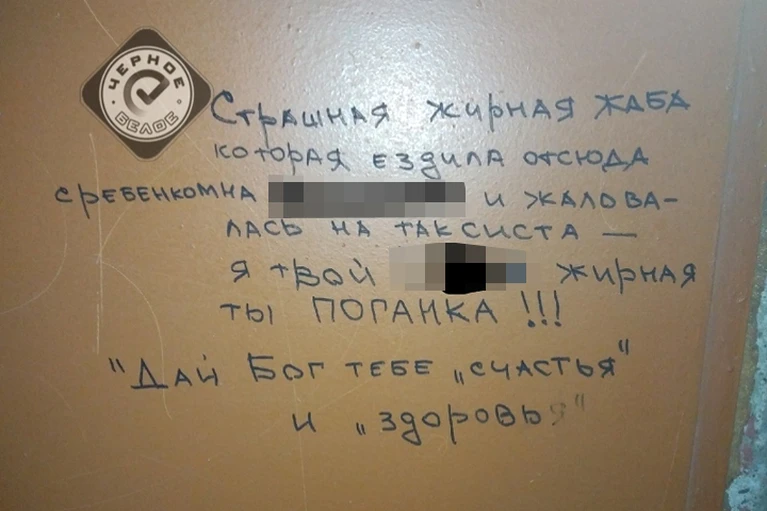 ЧЕРНОЕ
БЕЛОЕ
СТРАШНАЯ ЖИРНАЯ ЖАБА
КОТОРАЯ ЕЗДИЛА ОТСЮДА
С РЕБЕНКОМ НА И ЖАЛОВА-
ЛАСЬ НА ТАКСИСТА —
Я ТВОЙ ЖИРНАЯ
ТЫ ПОГАНКА !!!
"ДАЙ БОГ ТЕБЕ „СЧАСТЬЯ"
И „ЗДОРОВЬЯ"